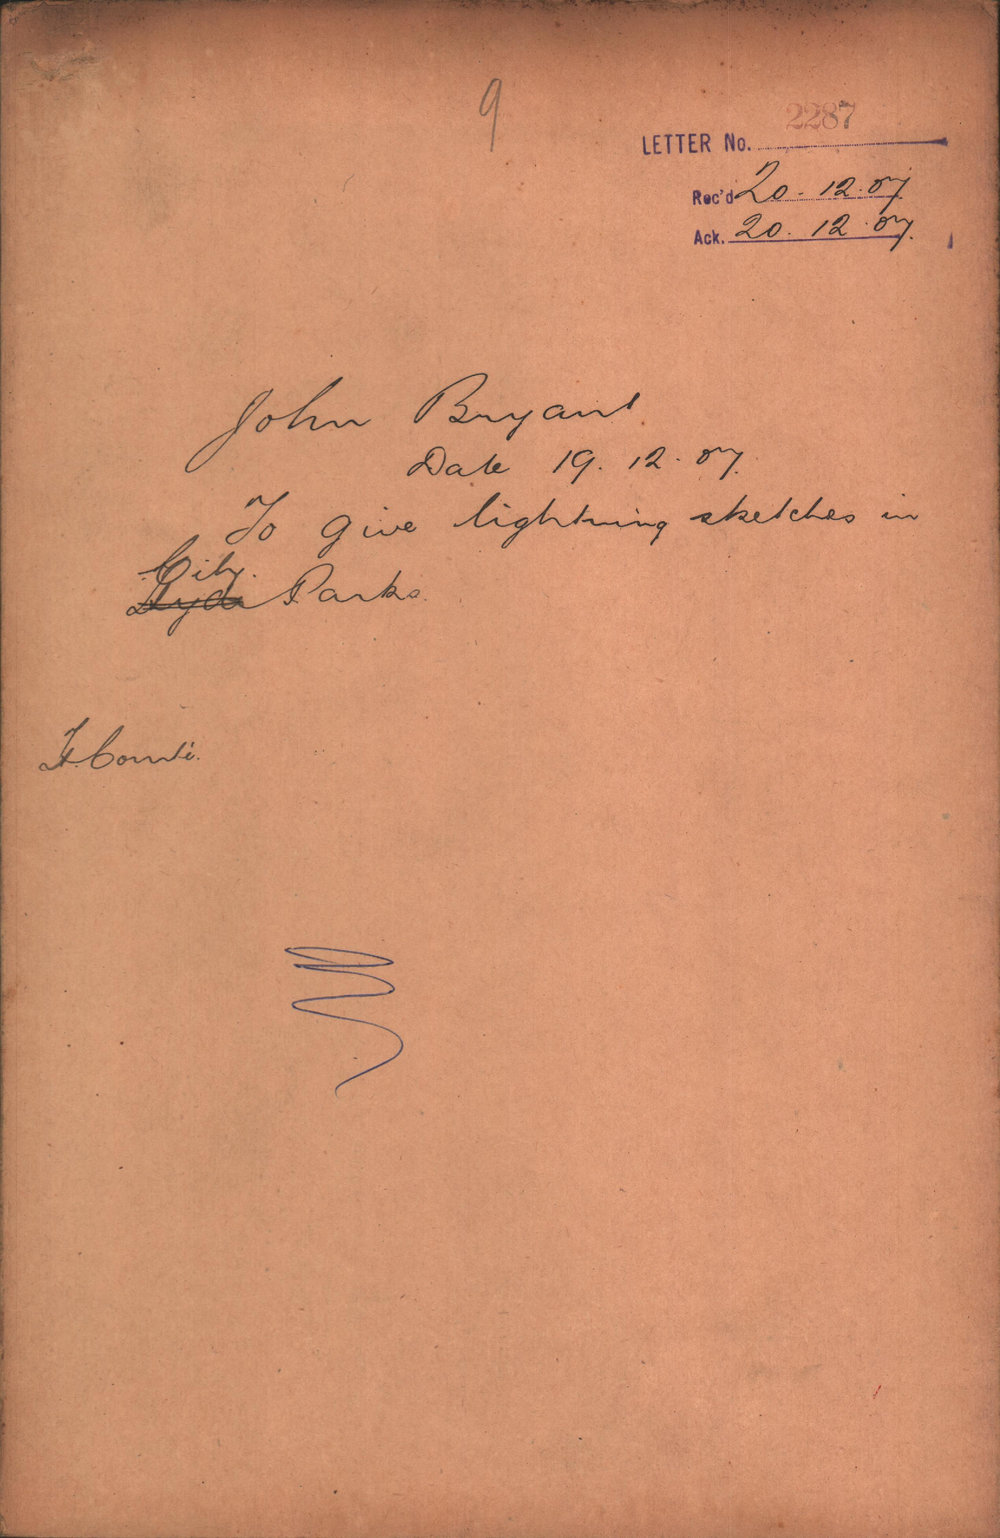 9
2287
LETTER No.
Rec'd 20. 12. 07
Ack. 20. 12. 07.
John Bryant
Date 19. 12. 07.
To give lightning sketches in
City.
Hyde Parks.